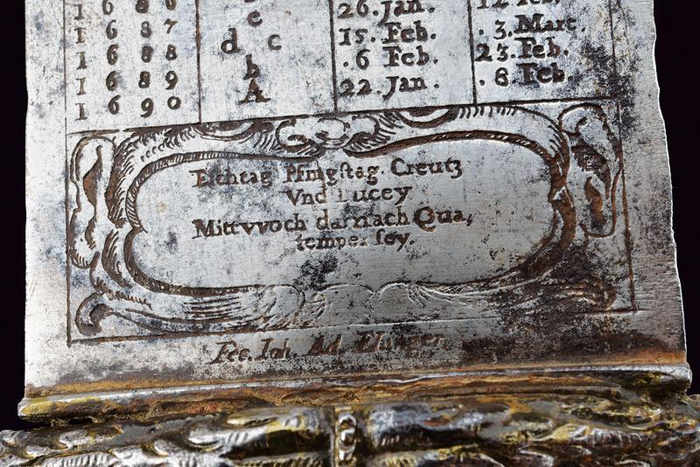 1 6 8 7 e 26. Jan. 12. Feb.
1 6 8 8 d c 15. Feb. . 3. Mart.
1 6 8 9 b . 6 Feb. 23. Feb.
1 6 9 0 A 22 Jan. . 8 Feb.
Pfingstag. Creutz
Vnd Lucey
Mittvvoch darnach Qua,
temper sey.
Fec. Joh. Ad.